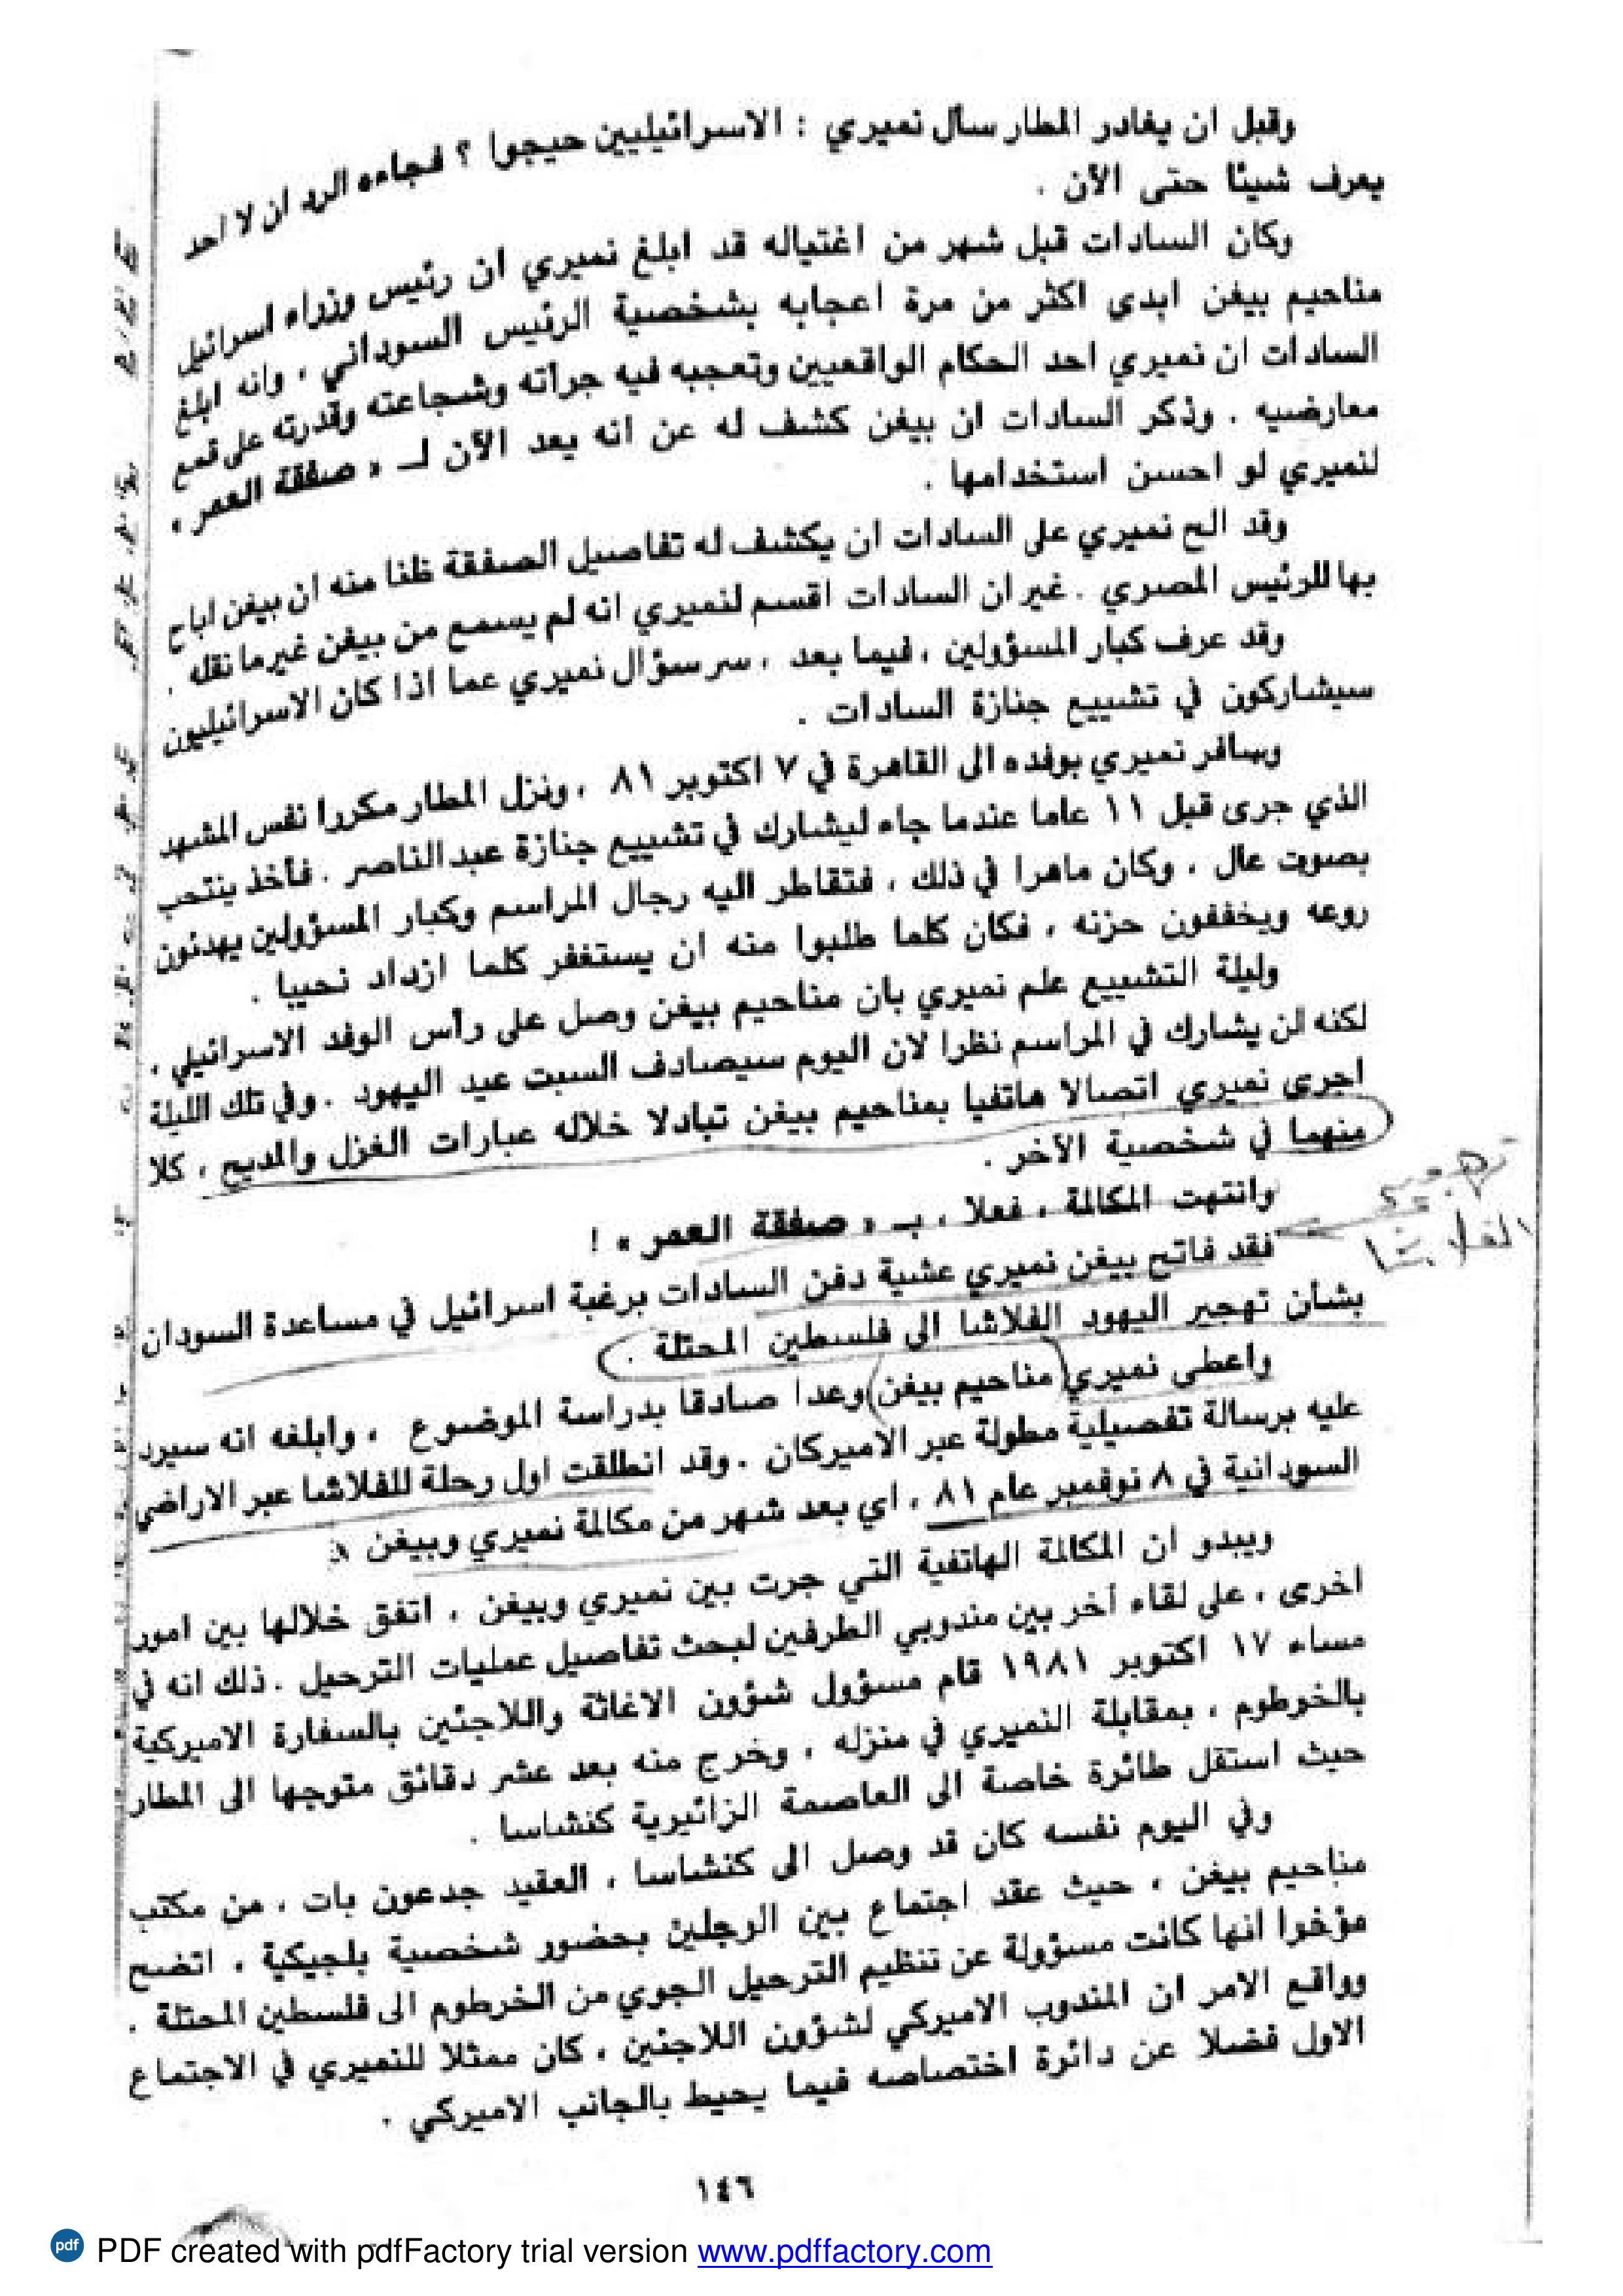 وقبل ان يغادر المطار سأل نميري : الاسرائيليين حيجوا ؟ فجاءه الرد ان لا احد
يعرف شيئا حتى الآن .
وكان السادات قبل شهر من اغتياله قد ابلغ نميري ان رئيس وزراء اسرائيل
مناحيم بيغن ابدى اكثر من مرة اعجابه بشخصية الرئيس السوداني ، وانه ابلغ
السادات ان نميري احد الحكام الواقعيين وتعجبه فيه جرأته وشجاعته وقدرته على قمع
معارضيه . وذكر السادات ان بيغن كشف له عن انه يعد الآن لـ « صفقة العمر »
لنميري لو احسن استخدامها .
وقد الح نميري على السادات ان يكشف له تفاصيل الصفقة ظنا منه ان بيغن اباح
بها للرئيس المصري . غير ان السادات اقسم لنميري انه لم يسمع من بيغن غير ما نقله .
وقد عرف كبار المسؤولين ، فيما بعد ، سر سؤال نميري عما اذا كان الاسرائيليون
سيشاركون في تشييع جنازة السادات .
وسافر نميري بوفده الى القاهرة في ٧ اكتوبر ٨١ ، ونزل المطار مكررا نفس المشهد
الذي جرى قبل ١١ عاما عندما جاء ليشارك في تشييع جنازة عبد الناصر . فأخذ ينتحب
بصوت عال ، وكان ماهرا في ذلك ، فتقاطر اليه رجال المراسم وكبار المسؤولين يهدئون
روعه ويخففون حزنه ، فكان كلما طلبوا منه ان يستغفر كلما ازداد نحيبا .
وليلة التشييع علم نميري بان مناحيم بيغن وصل على رأس الوفد الاسرائيلي ،
لكنه لن يشارك في المراسم نظرا لان اليوم سيصادف السبت عيد اليهود . وفي تلك الليلة
اجرى نميري اتصالا هاتفيا بمناحيم بيغن تبادلا خلاله عبارات الغزل والمديح ، كلا
منهما في شخصية الآخر .
تهجير
الفلاشا
وانتهت المكالمة ، فعلا ، بـ « صفقة العمر » !
فقد فاتح بيغن نميري عشية دفن السادات برغبة اسرائيل في مساعدة السودان
بشأن تهجير اليهود الفلاشا الى فلسطين المحتلة .
واعطى نميري (مناحيم بيغن) وعدا صادقا بدراسة الموضوع ، وابلغه انه سيرد
عليه برسالة تفصيلية مطولة عبر الاميركان . وقد انطلقت اول رحلة للفلاشا عبر الاراضي
السودانية في ٨ نوفمبر عام ٨١ ، اي بعد شهر من مكالمة نميري وبيغن
ويبدو ان المكالمة الهاتفية التي جرت بين نميري وبيغن ، اتفق خلالها بين امور
اخرى ، على لقاء أخر بين مندوبي الطرفين لبحث تفاصيل عمليات الترحيل . ذلك انه في
مساء ١٧ اكتوبر ١٩٨١ قام مسؤول شؤون الاغاثة واللاجئين بالسفارة الاميركية
بالخرطوم ، بمقابلة النميري في منزله ، وخرج منه بعد عشر دقائق متوجها الى المطار
حيث استقل طائرة خاصة الى العاصمة الزائيرية كنشاسا .
وفي اليوم نفسه كان قد وصل الى كنشاسا ، العقيد جدعون بات ، من مكتب
مناحيم بيغن ، حيث عقد اجتماع بين الرجلين بحضور شخصية بلجيكية ، اتضح
مؤخرا انها كانت مسؤولة عن تنظيم الترحيل الجوي من الخرطوم الى فلسطين المحتلة .
وواقع الامر ان المندوب الاميركي لشؤون اللاجئين ، كان ممثلا للنميري في الاجتماع
الاول فضلا عن دائرة اختصاصه فيما يحيط بالجانب الاميركي .
١٤٦
pdf PDF created with pdfFactory trial version www.pdffactory.com